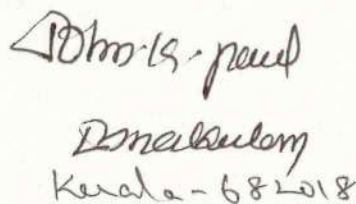 John.K.paul
Ernakulam
Kerala-682018